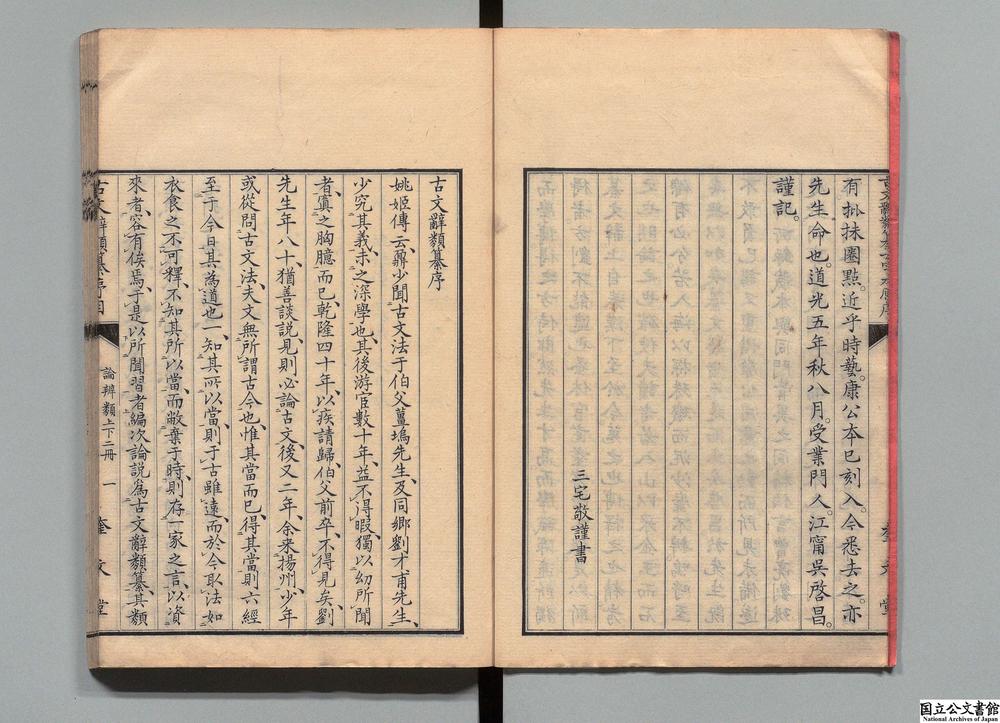 有批抹圈點。近乎時藝。康公本已刻入。今悉去之。亦
先生命也。道光五年秋八月。受業門人。江甯吳啓昌。
謹記。
三宅敬謹書
奎文堂
古文辭類纂序
姚姬傳云、鼐少聞古文法于伯父薑塢先生、及同鄉劉才甫先生、
少究其義、未之深學也、其後游宦數十年、益不得暇、獨以幼所聞
者、寘之胸臆而已、乾隆四十年、以疾請歸、伯父前卒、不得見矣、劉
先生年八十、猶善談說、見則必論古文、後又二年、余來揚州、少年
或從問古文法、夫文無所謂古今也、惟其當而已、得其當、則六經
至于今日、其為道也一、知其所以當、則于古雖遠、而於今取法、如
衣食之不可釋、不知其所以當、而敝棄于時、則存一家之言、以資
來者、容有俟焉、于是以所聞習者、編次論說、為古文辭類纂、其類
古文辭類纂序目
論辨類上下二冊
一
奎文堂
国立公文書館
National Archives of Japan